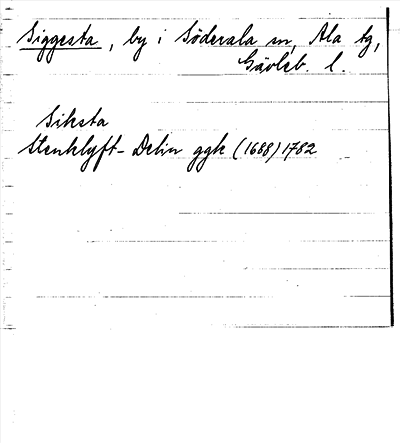 Siggesta, by i Söderala sn, Ala tg,
Gävleb. l.
Siksta
Stenklyft - Delin ggk (1688) 1782